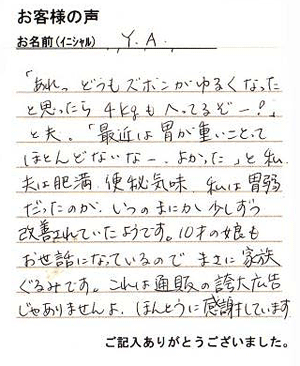 お客様の声
お名前(イニシャル) Y.A.
「あれっ どうもズボンがゆるくなった
と思ったら 4kgもへってるぞー!」
と夫。「最近は胃が重いことって
ほとんどないなー、よかった」と私.
夫は肥満、便秘気味、私は胃弱
だったのが、いつのまにか少しずつ
改善されていたようです。10才の娘も
お世話になっているので まさに家族
ぐるみです。これは通販の誇大広告
じゃありませんよ、ほんとうに感謝しています
ご記入ありがとうございました。